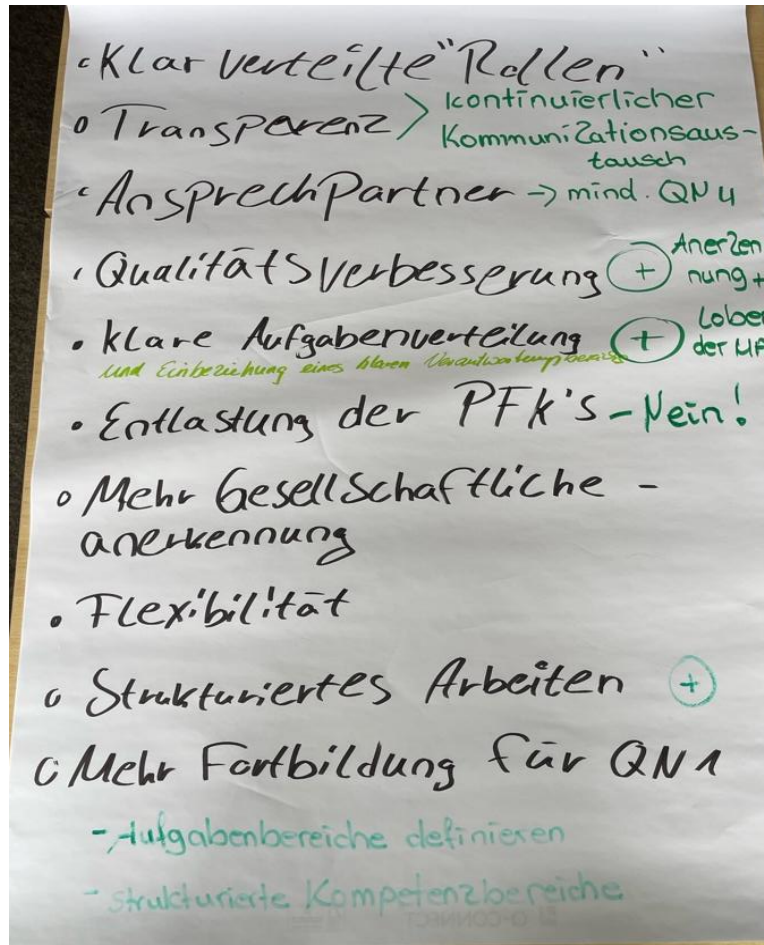 Klar verteilte "Rollen"
Transparenz > kontinuierlicher
Kommunikationsaus-
tausch
Ansprechpartner → mind. QN4
Qualitätsverbesserung + Anerken
nung +
klare Aufgabenverteilung + Loben
der MA
und Einbeziehung eines klaren
Entlastung der PFK's - Nein!
Mehr Gesellschaftliche -
anerkennung
Flexibilität
Strukturiertes Arbeiten +
Mehr Fortbildung für QN1
- Aufgabenbereiche definieren
- strukturierte Kompetenzbereiche